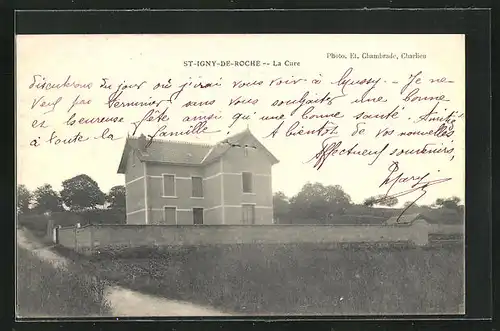 ST-IGNY-DE-ROCHE -- La Cure
Photo. Et. Chambrade, Charlieu
discuterons du jour où j'irai vous voir à Cussy - Je ne
veux pas terminer sans vous souhaiter une bonne
et heureuse fête ainsi qu'une bonne santé. Amitiés
à toute la famille. A bientôt de vos nouvelles
Affectueux souvenirs,